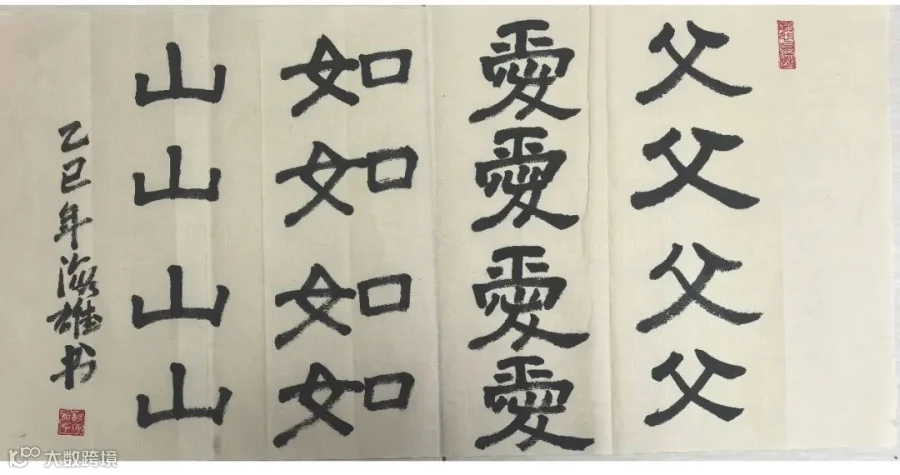 父父父父
愛愛愛愛
如如如如
山山山山
乙巳年海雄书
大数跨境